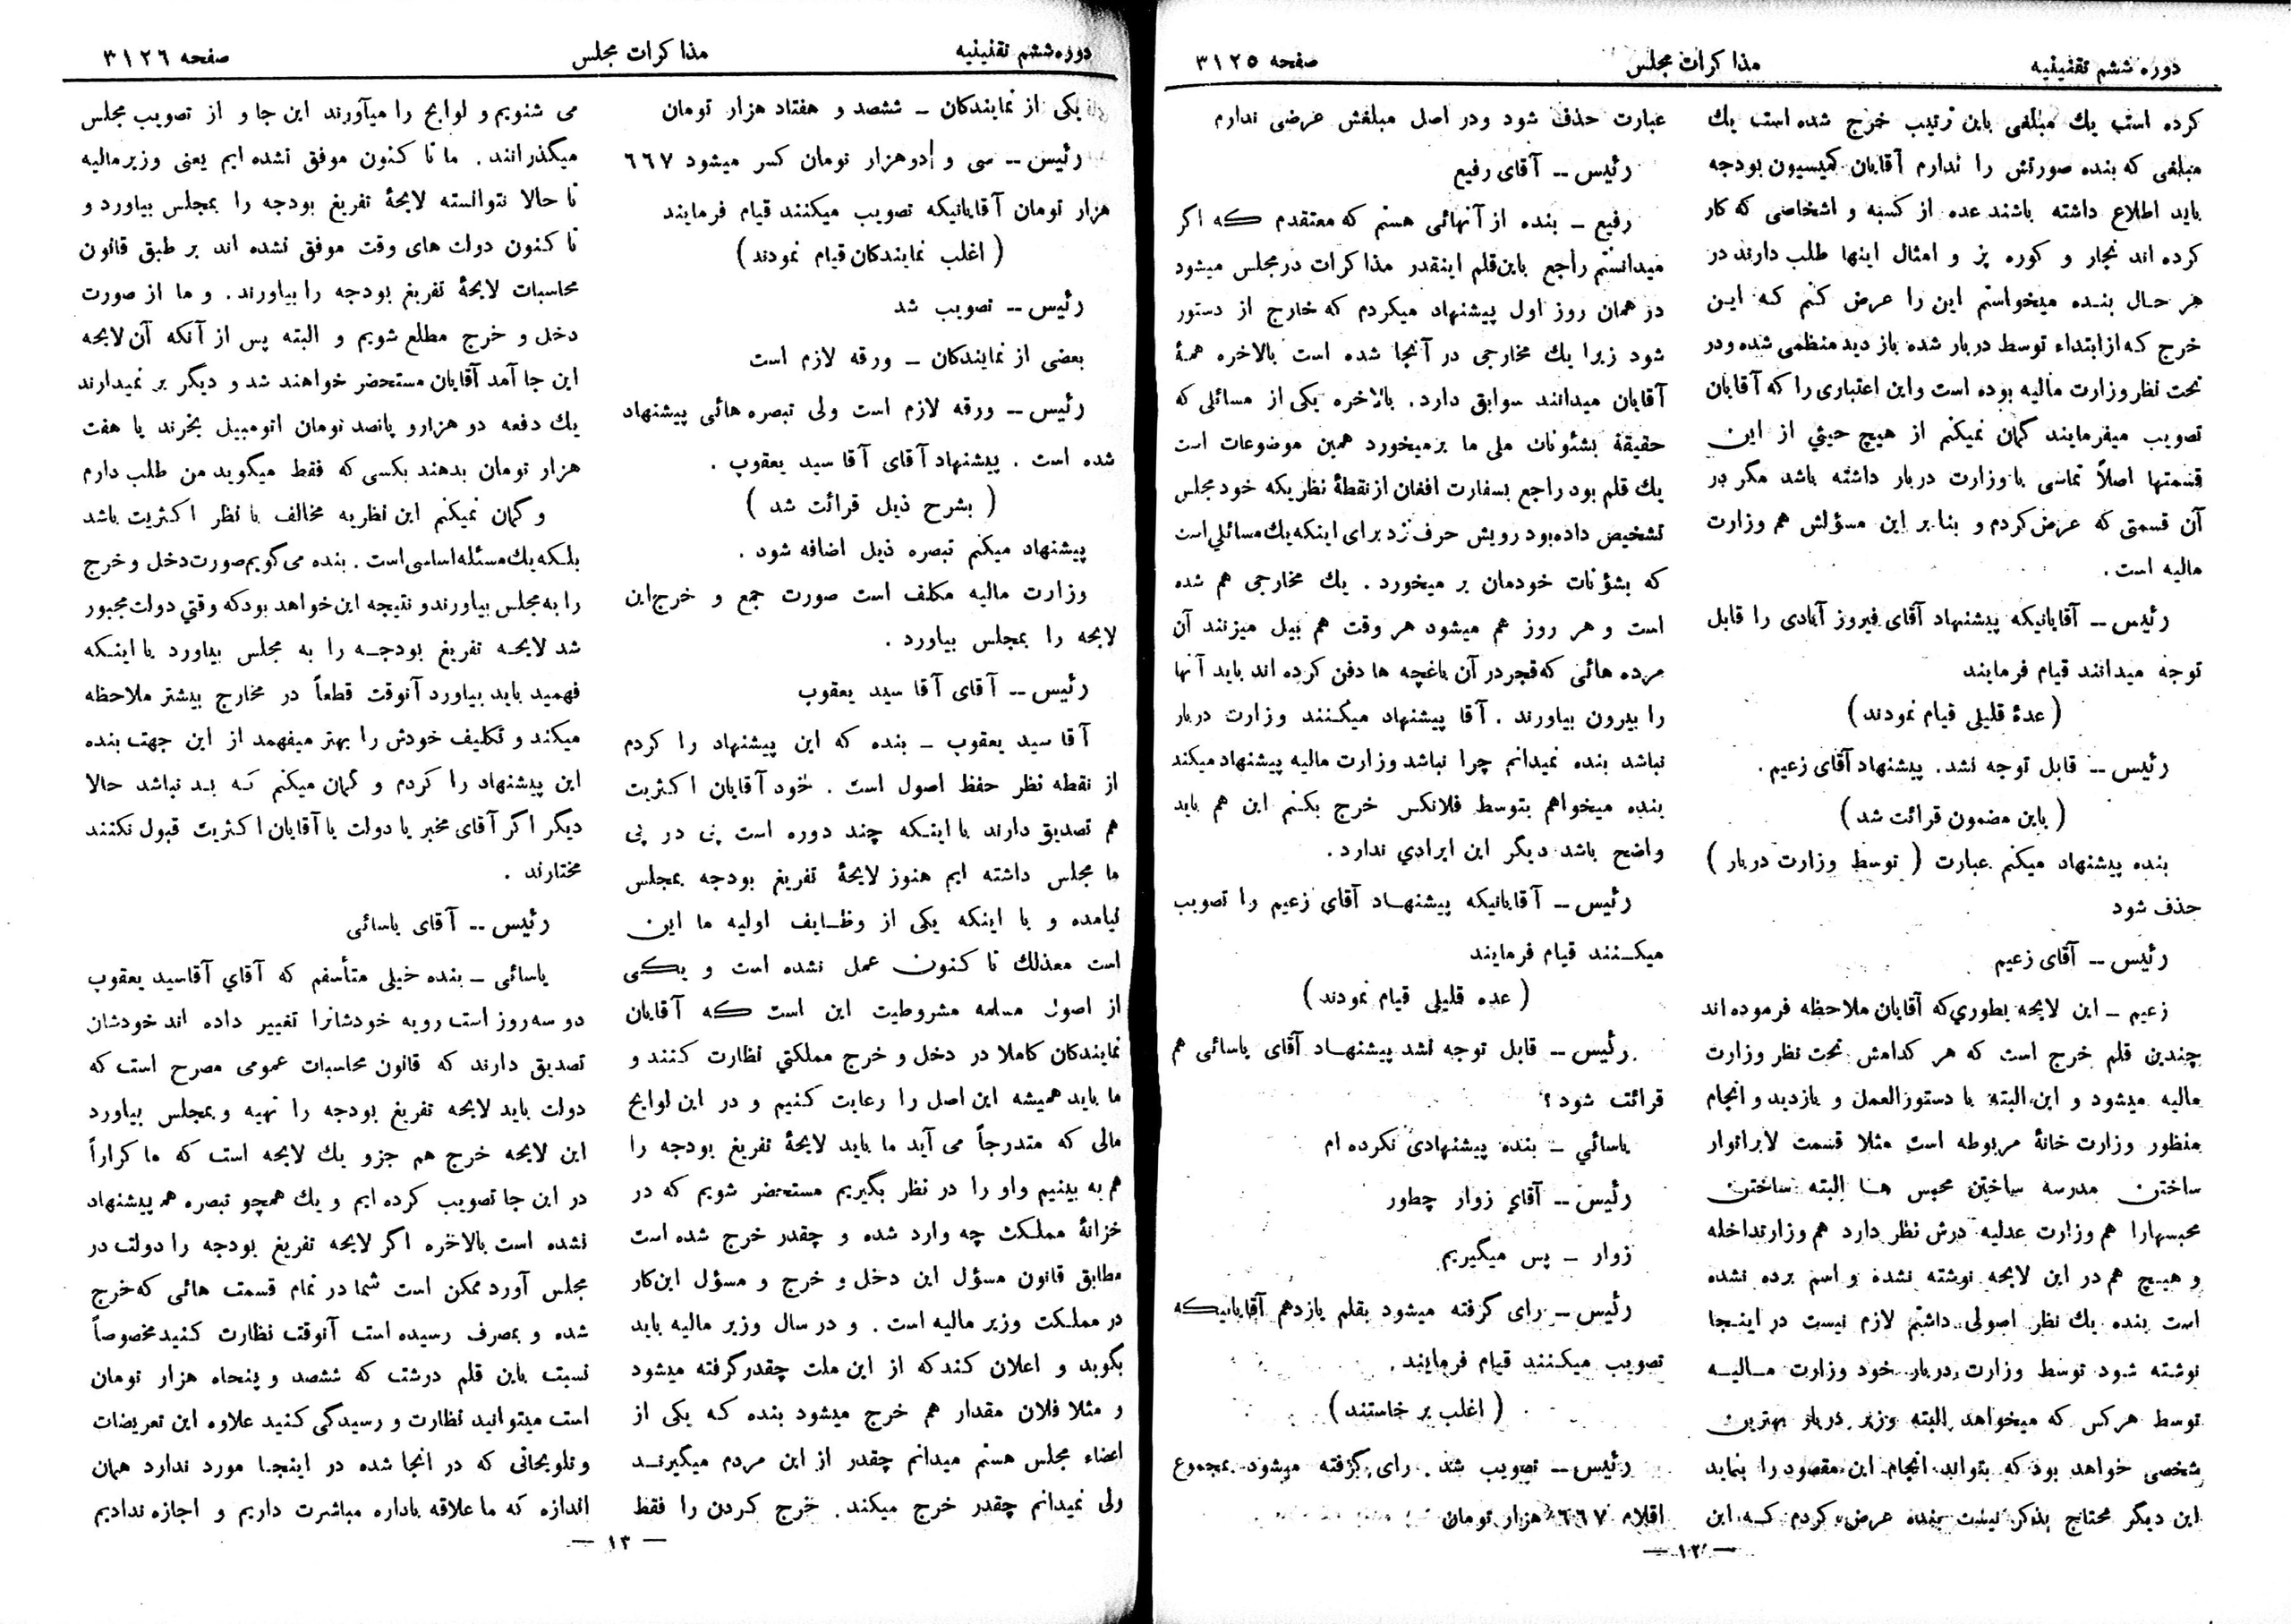 دوره ششم تقنینیه
مذاکرات مجلس
صفحه ۳۱۲۵
کرده است یك مبلغی باین ترتیب خرج شده است یك
مبلغی که بنده صورتش را ندارم آقایان کمیسیون بودجه
باید اطلاع داشته باشند عده از کسبه و اشخاصی که کار
کرده اند نجار و کوره پز و امثال اینها طلب دارند در
هر حال بنده میخواستم این را عرض کنم که این
خرج که از ابتداء توسط دربار شده بازدید منظمی شده و در
تحت نظر وزارت مالیه بوده است و این اعتباری را که آقایان
تصویب میفرمایند گمان نمیکنم از هیچ حیثي از این
قسمتها اصلاً تماسی با وزارت دربار داشته باشد مگر در
آن قسمتی که عرض کردم و بنا بر این مسؤلش هم وزارت
مالیه است.
رئیس -- آقایانیکه پیشنهاد آقای فیروز آبادی را قابل
توجه میدانند قیام فرمایند
(عدۀ قلیلی قیام نمودند)
رئیس -- قابل توجه نشد. پیشنهاد آقای زعیم.
(باین مضمون قرائت شد)
بنده پیشنهاد میکنم عبارت ( توسط وزارت دربار )
حذف شود
رئیس -- آقای زعیم
زعیم ــ این لایحه بطوري که آقایان ملاحظه فرموده اند
چندین قلم خرج است که هر کدامش تحت نظر وزارت
مالیه میشود و این البته با دستورالعمل و بازدید و انجام
منظور وزارت خانۀ مربوطه است مثلا قسمت لابراتوار
ساختن مدرسه ساختن محبس ها البته ساختن
محبسها را هم وزارت عدلیه درش نظر دارد هم وزارتداخله
و هیچ هم در این لایحه نوشته نشده و اسم برده نشده
است بنده یك نظر اصولی داشتم لازم نیست در اینجا
نوشته شود توسط وزارت دربار خود وزارت مالیه
توسط هرکس که میخواهد البته وزیر دربار بهترین
شخصی خواهد بود که بتواند انجام این مقصود را بنماید
این دیگر محتاج بذکر نیست بنده عرض کردم که این
عبارت حذف شود و در اصل مبلغش عرضی ندارم
رئیس -- آقای رفیع
رفیع ــ بنده از آنهائی هستم که معتقدم که اگر
میدانستم راجع باین قلم اینقدر مذاکرات در مجلس میشود
در همان روز اول پیشنهاد میکردم که خارج از دستور
شود زیرا یك مخارجی در آنجا شده است بالاخره همۀ
آقایان میدانند سوابق دارد. بالاخره یکی از مسائلی که
حقیقة بشئونات ملی ما برمیخورد همین موضوعات است
یك قلم بود راجع بسفارت افغان از نقطۀ نظریکه خود مجلس
تشخیص داده بود رویش حرف نزد برای اینکه یك مسائلي است
که بشؤنات خودمان بر میخورد. یك مخارجی هم شده
است و هر روز هم میشود هر وقت هم بیل میزنند آن
مرده هائی که قجر در آن باغچه ها دفن کرده اند باید آنها
را بیرون بیاورند. آقا پیشنهاد میکنند وزارت دربار
نباشد بنده نمیدانم چرا نباشد وزارت مالیه پیشنهاد میکند
بنده میخواهم بتوسط فلانکس خرج بکنم این هم باید
واضح باشد دیگر این ایرادي ندارد.
رئیس -- آقایانیکه پیشنهاد آقای زعیم را تصویب
میکنند قیام فرمایند
(عده قلیلی قیام نمودند)
رئیس -- قابل توجه نشد پیشنهاد آقای یاسائی هم
قرائت شود؟
یاسائي ــ بنده پیشنهادی نکرده ام
رئیس -- آقای زوار چطور
زوار ــ پس میگیریم
رئیس -- رای گرفته میشود بقلم یازدهم آقایانیکه
تصویب میکنند قیام فرمایند.
(اغلب بر خاستند)
رئیس -- تصویب شد. رای گرفته میشود بمجموع
اقلام ۶۶۷ هزار تومان
— ۱۲ —
دوره ششم تقنینیه
مذاکرات مجلس
صفحه ۳۱۲۶
یکی از نمایندکان ــ ششصد و هفتاد هزار تومان
رئیس -- سی و دو هزار تومان کسر میشود ۶۶۷
هزار تومان آقایانیکه تصویب میکنند قیام فرمایند
(اغلب نمایندکان قیام نمودند)
رئیس -- تصویب شد
بعضی از نمایندکان ــ ورقه لازم است
رئیس -- ورقه لازم است ولی تبصره هائی پیشنهاد
شده است. پیشنهاد آقای آقا سید یعقوب.
(بشرح ذیل قرائت شد)
پیشنهاد میکنم تبصره ذیل اضافه شود.
وزارت مالیه مکلف است صورت جمع و خرج این
لایحه را بمجلس بیاورد.
رئیس -- آقای آقا سید یعقوب
آقا سید یعقوب ــ بنده که این پیشنهاد را کردم
از نقطه نظر حفظ اصول است. خود آقایان اکثریت
هم تصدیق دارند با اینکه چند دوره است پی در پی
ما مجلس داشته ایم هنوز لایحۀ تفریغ بودجه بمجلس
نیامده و با اینکه یکی از وظایف اولیه ما این
است معذلك تا کنون عمل نشده است و یکی
از اصول مسلمه مشروطیت این است که آقایان
نمایندکان کاملا در دخل و خرج مملکتي نظارت کنند و
ما باید همیشه این اصل را رعایت کنیم و در این لوایح
مالی که متدرجاً می آید ما باید لایحۀ تفریغ بودجه را
هم به بینیم و او را در نظر بگیریم مستحضر شویم که در
خزانۀ مملکت چه وارد شده و چقدر خرج شده است
مطابق قانون مسؤل این دخل و خرج و مسؤل این کار
در مملکت وزیر مالیه است. و در سال وزیر مالیه باید
بگوید و اعلان کند که از این ملت چقدر گرفته میشود
و مثلا فلان مقدار هم خرج میشود بنده که یکی از
اعضاء مجلس هستم میدانم چقدر از این مردم میگیرند
ولی نمیدانم چقدر خرج میکند. خرج کردن را فقط
می شنویم و لوایح را میآورند این جا و از تصویب مجلس
میگذرانند. ما تا کنون موفق نشده ایم یعنی وزیر مالیه
تا حالا نتوانسته لایحۀ تفریغ بودجه را بمجلس بیاورد و
تا کنون دولت های وقت موفق نشده اند بر طبق قانون
محاسبات لایحۀ تفریغ بودجه را بیاورند. و ما از صورت
دخل و خرج مطلع شویم و البته پس از آنکه آن لایحه
این جا آمد آقایان مستحضر خواهند شد و دیگر بر نمیدارند
یك دفعه دو هزار و پانصد تومان اتومبیل بخرند یا هفت
هزار تومان بدهند بکسی که فقط میگوید من طلب دارم
و گمان نمیکنم این نظریه مخالف با نظر اکثریت باشد
بلکه یك مسئله اساسی است. بنده می گویم صورت دخل و خرج
را به مجلس بیاورند و نتیجه این خواهد بود که وقتي دولت مجبور
شد لایحه تفریغ بودجه را به مجلس بیاورد با اینکه
فهمید باید بیاورد آنوقت قطعاً در مخارج بیشتر ملاحظه
میکند و تکلیف خودش را بهتر میفهمد از این جهت بنده
این پیشنهاد را کردم و گمان میکنم که بد نباشد حالا
دیگر اگر آقای مخبر یا دولت یا آقایان اکثریت قبول نکنند
مختارند.
رئیس -- آقای یاسائی
یاسائی ــ بنده خیلی متأسفم که آقاي آقاسید یعقوب
دو سه روز است رویه خودشانرا تغییر داده اند خودشان
تصدیق دارند که قانون محاسبات عمومی مصرح است که
دولت باید لایحه تفریغ بودجه را تهیه و بمجلس بیاورد
این لایحه خرج هم جزو یك لایحه است که ما کراراً
در این جا تصویب کرده ایم و یك همچو تبصره هم پیشنهاد
نشده است بالاخره اگر لایحه تفریغ بودجه را دولت در
مجلس آورد ممکن است شما در تمام قسمت هائی که خرج
شده و بمصرف رسیده است آنوقت نظارت کنید مخصوصاً
نسبت باین قلم درشت که ششصد و پنجاه هزار تومان
است میتوانید نظارت و رسیدگی کنید علاوه این تعریضات
و تلویحاتی که در انجا شده در اینجا مورد ندارد همان
اندازه که ما علاقه باداره مباشرت داریم و اجازه ندادیم
— ۱۳ —